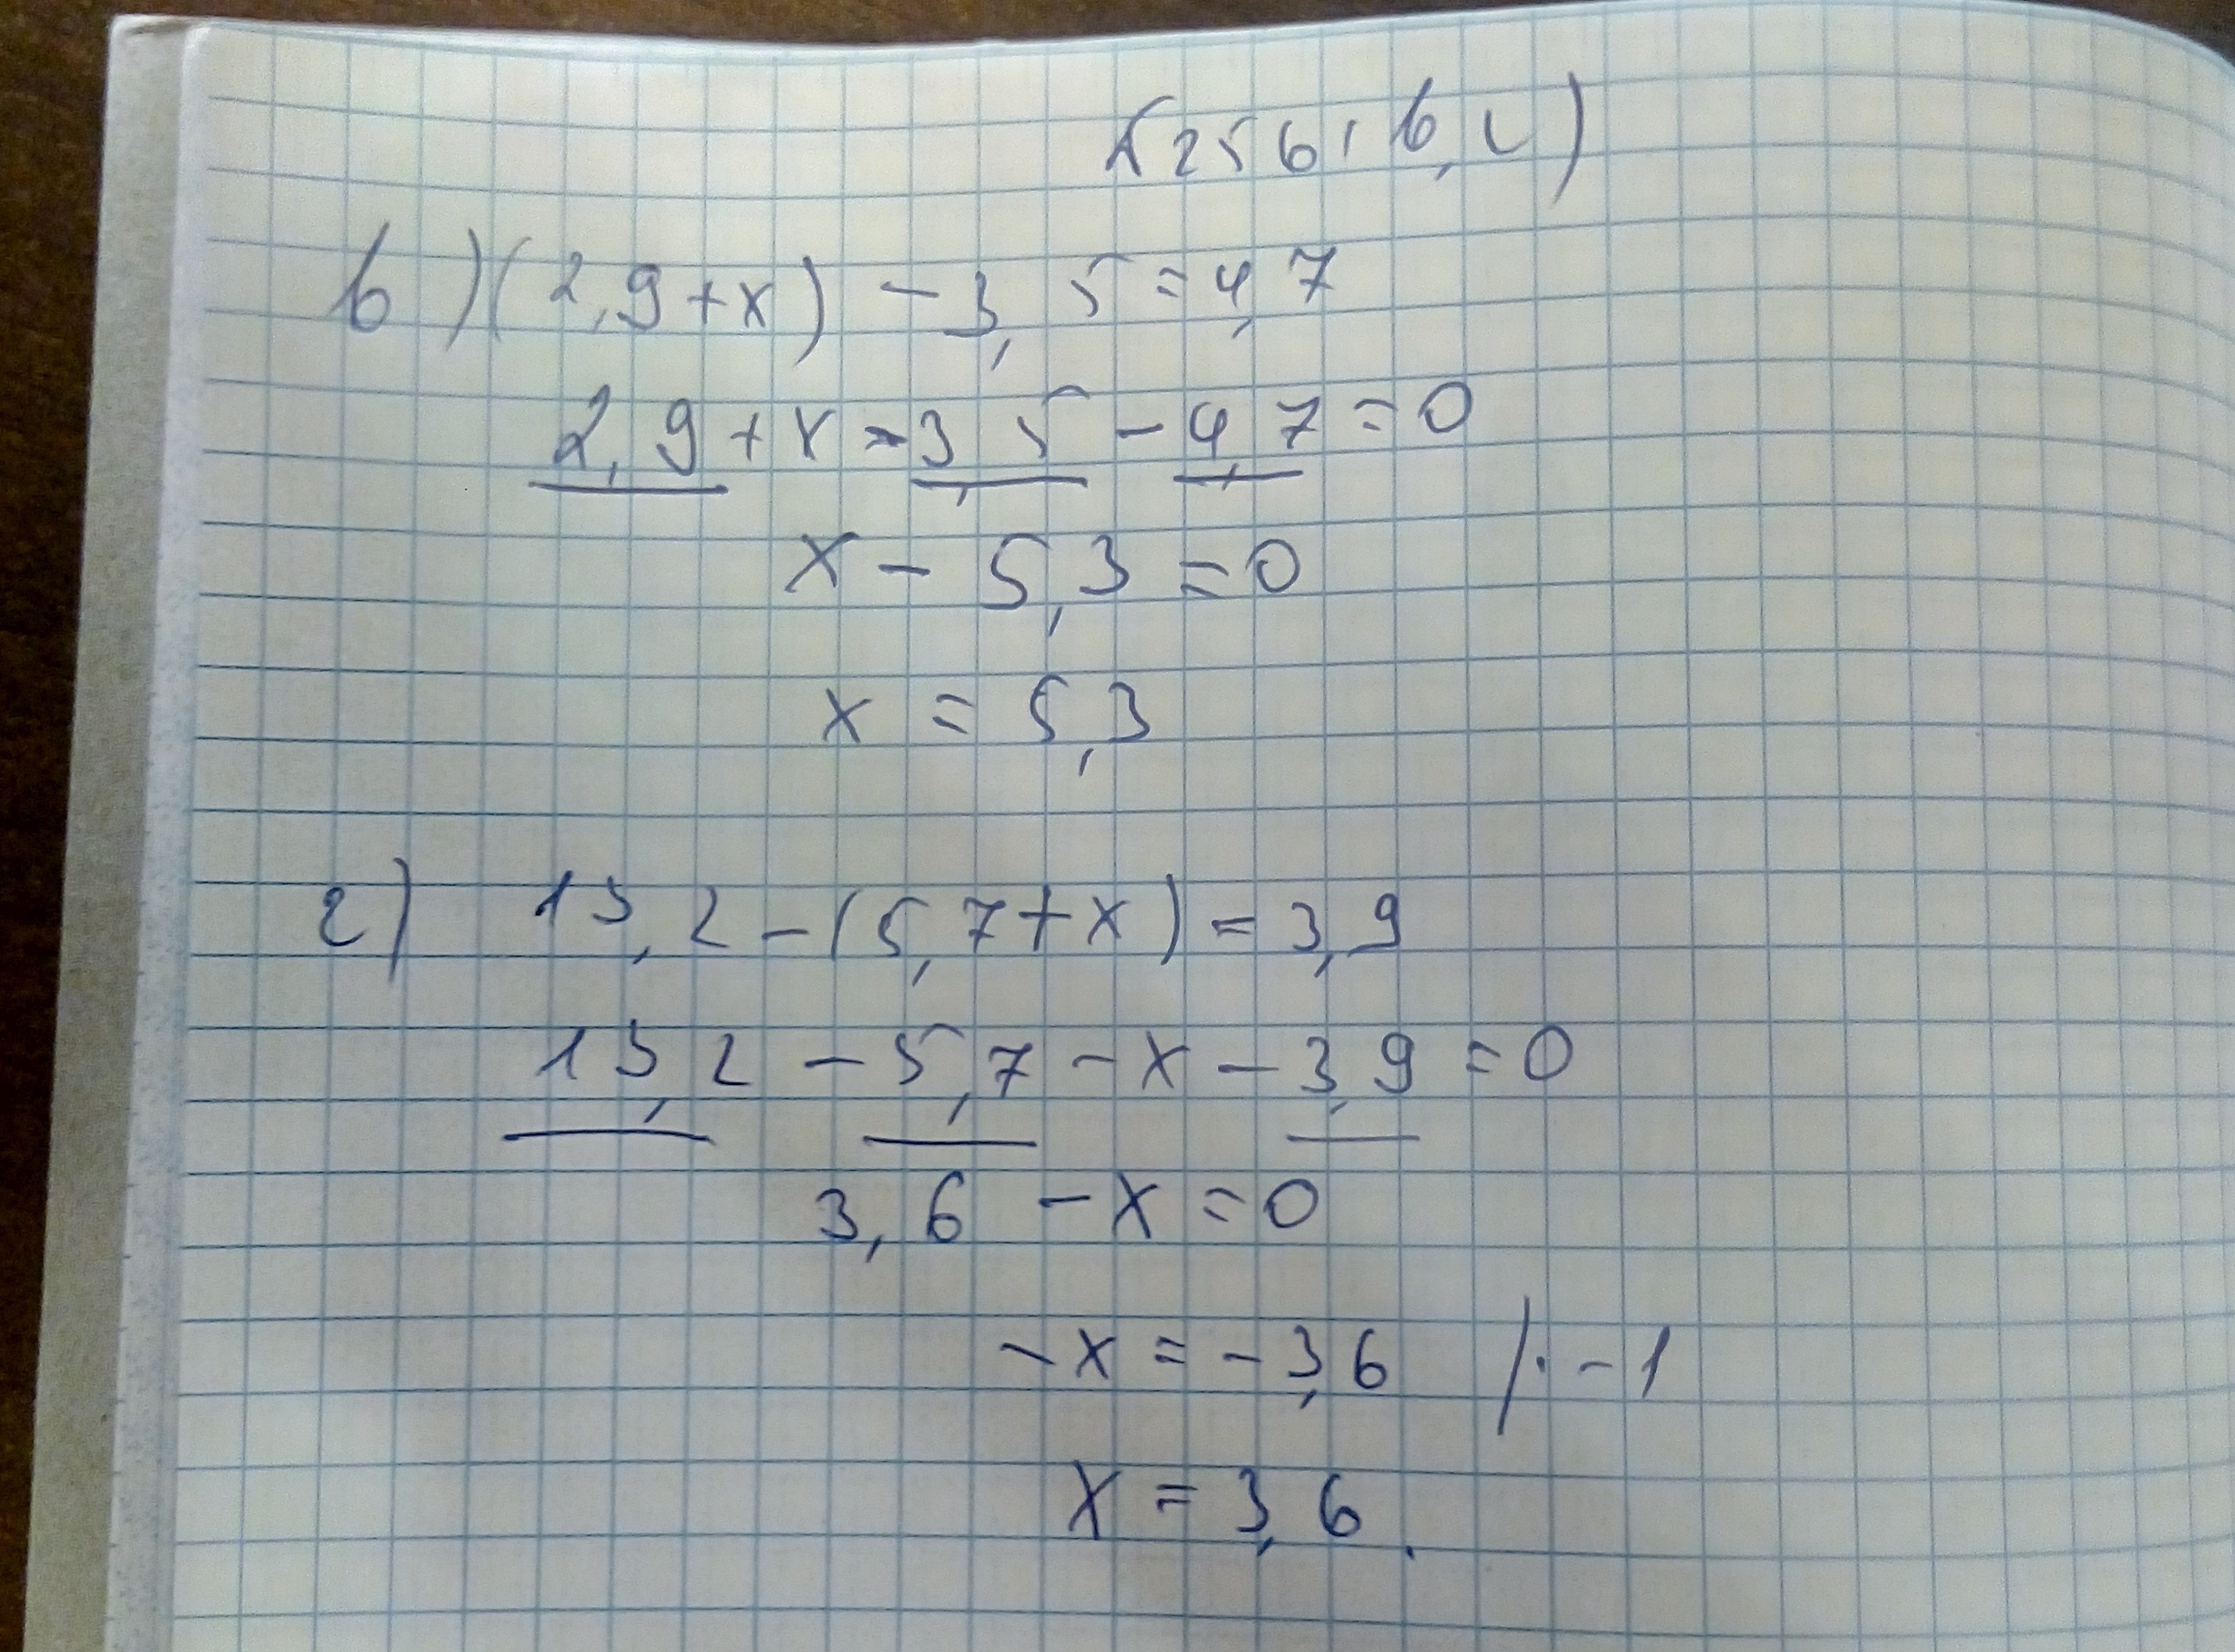 1256, в, г)
в) (2,9+x) - 3,5 = 4,7
2,9 + x - 3,5 - 4,7 = 0
x - 5,3 = 0
x = 5,3
г) 13,2 - (5,7 + x) = 3,9
13,2 - 5,7 - x - 3,9 = 0
3,6 - x = 0
-x = -3,6 / · -1
x = 3,6.